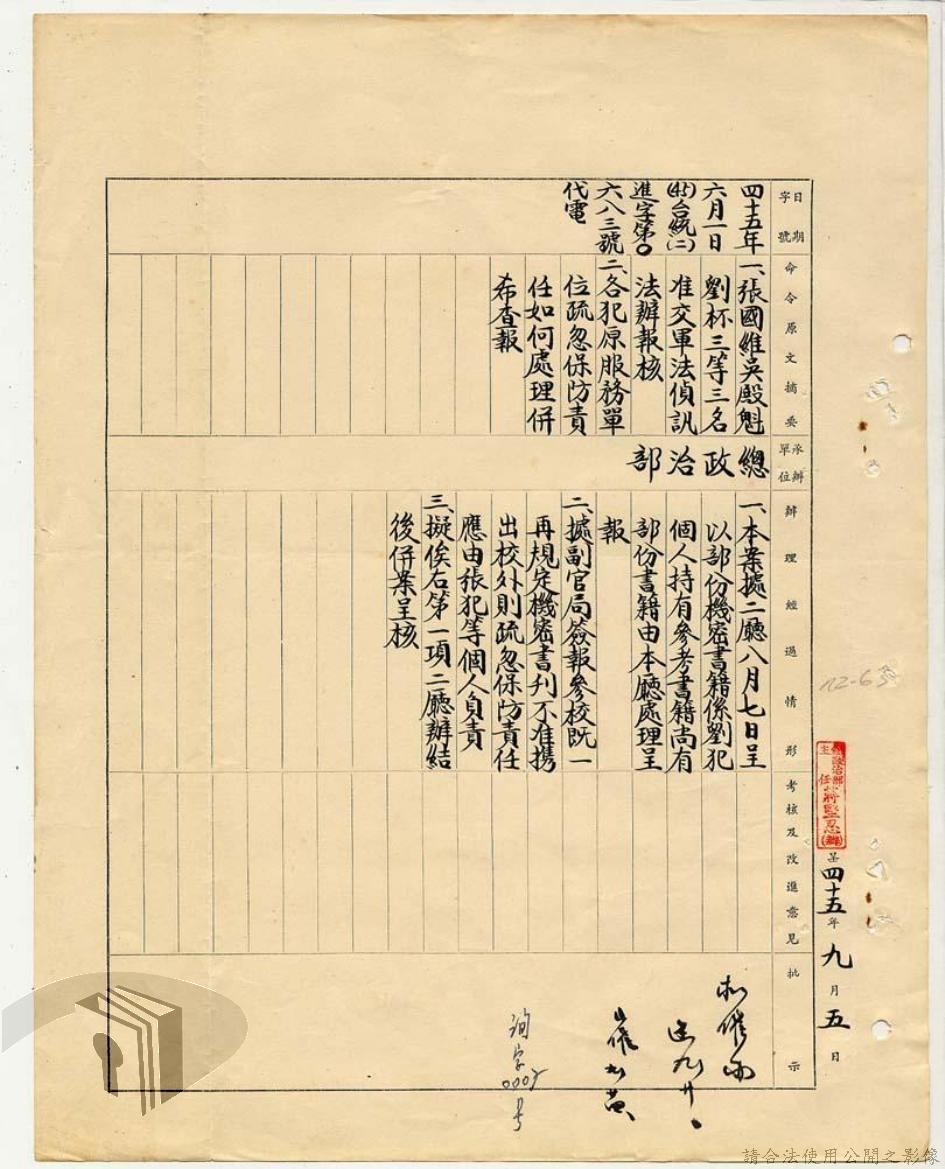 日期
字號
四十五年
六月一日
(45)台統(二)
進字第0
六八三號
代電
命令原文摘要
一、張國維吳殿魁
劉杯三等三名
准交軍法偵訊
法辦報核
二、各犯原服務單
位疏忽保防責
任如何處理併
希查報
承辦
單位
總政治部
辦理經過情形
一、本案據二廳八月七日呈
以部份機密書籍係劉犯
個人持有參考書籍尚有
部份書籍由本廳處理呈
報
二、據副官局簽報參校既一
再規定機密書刊不准携
出校外則疏忽保防責任
應由張犯等個人負責
三、擬俟右第一項二廳辦結
後併案呈核
考核及改進意見
批示
0005
號
總政治部
主任蔣堅忍
呈四十五年九月五日
12-63
請合法使用公開之影像